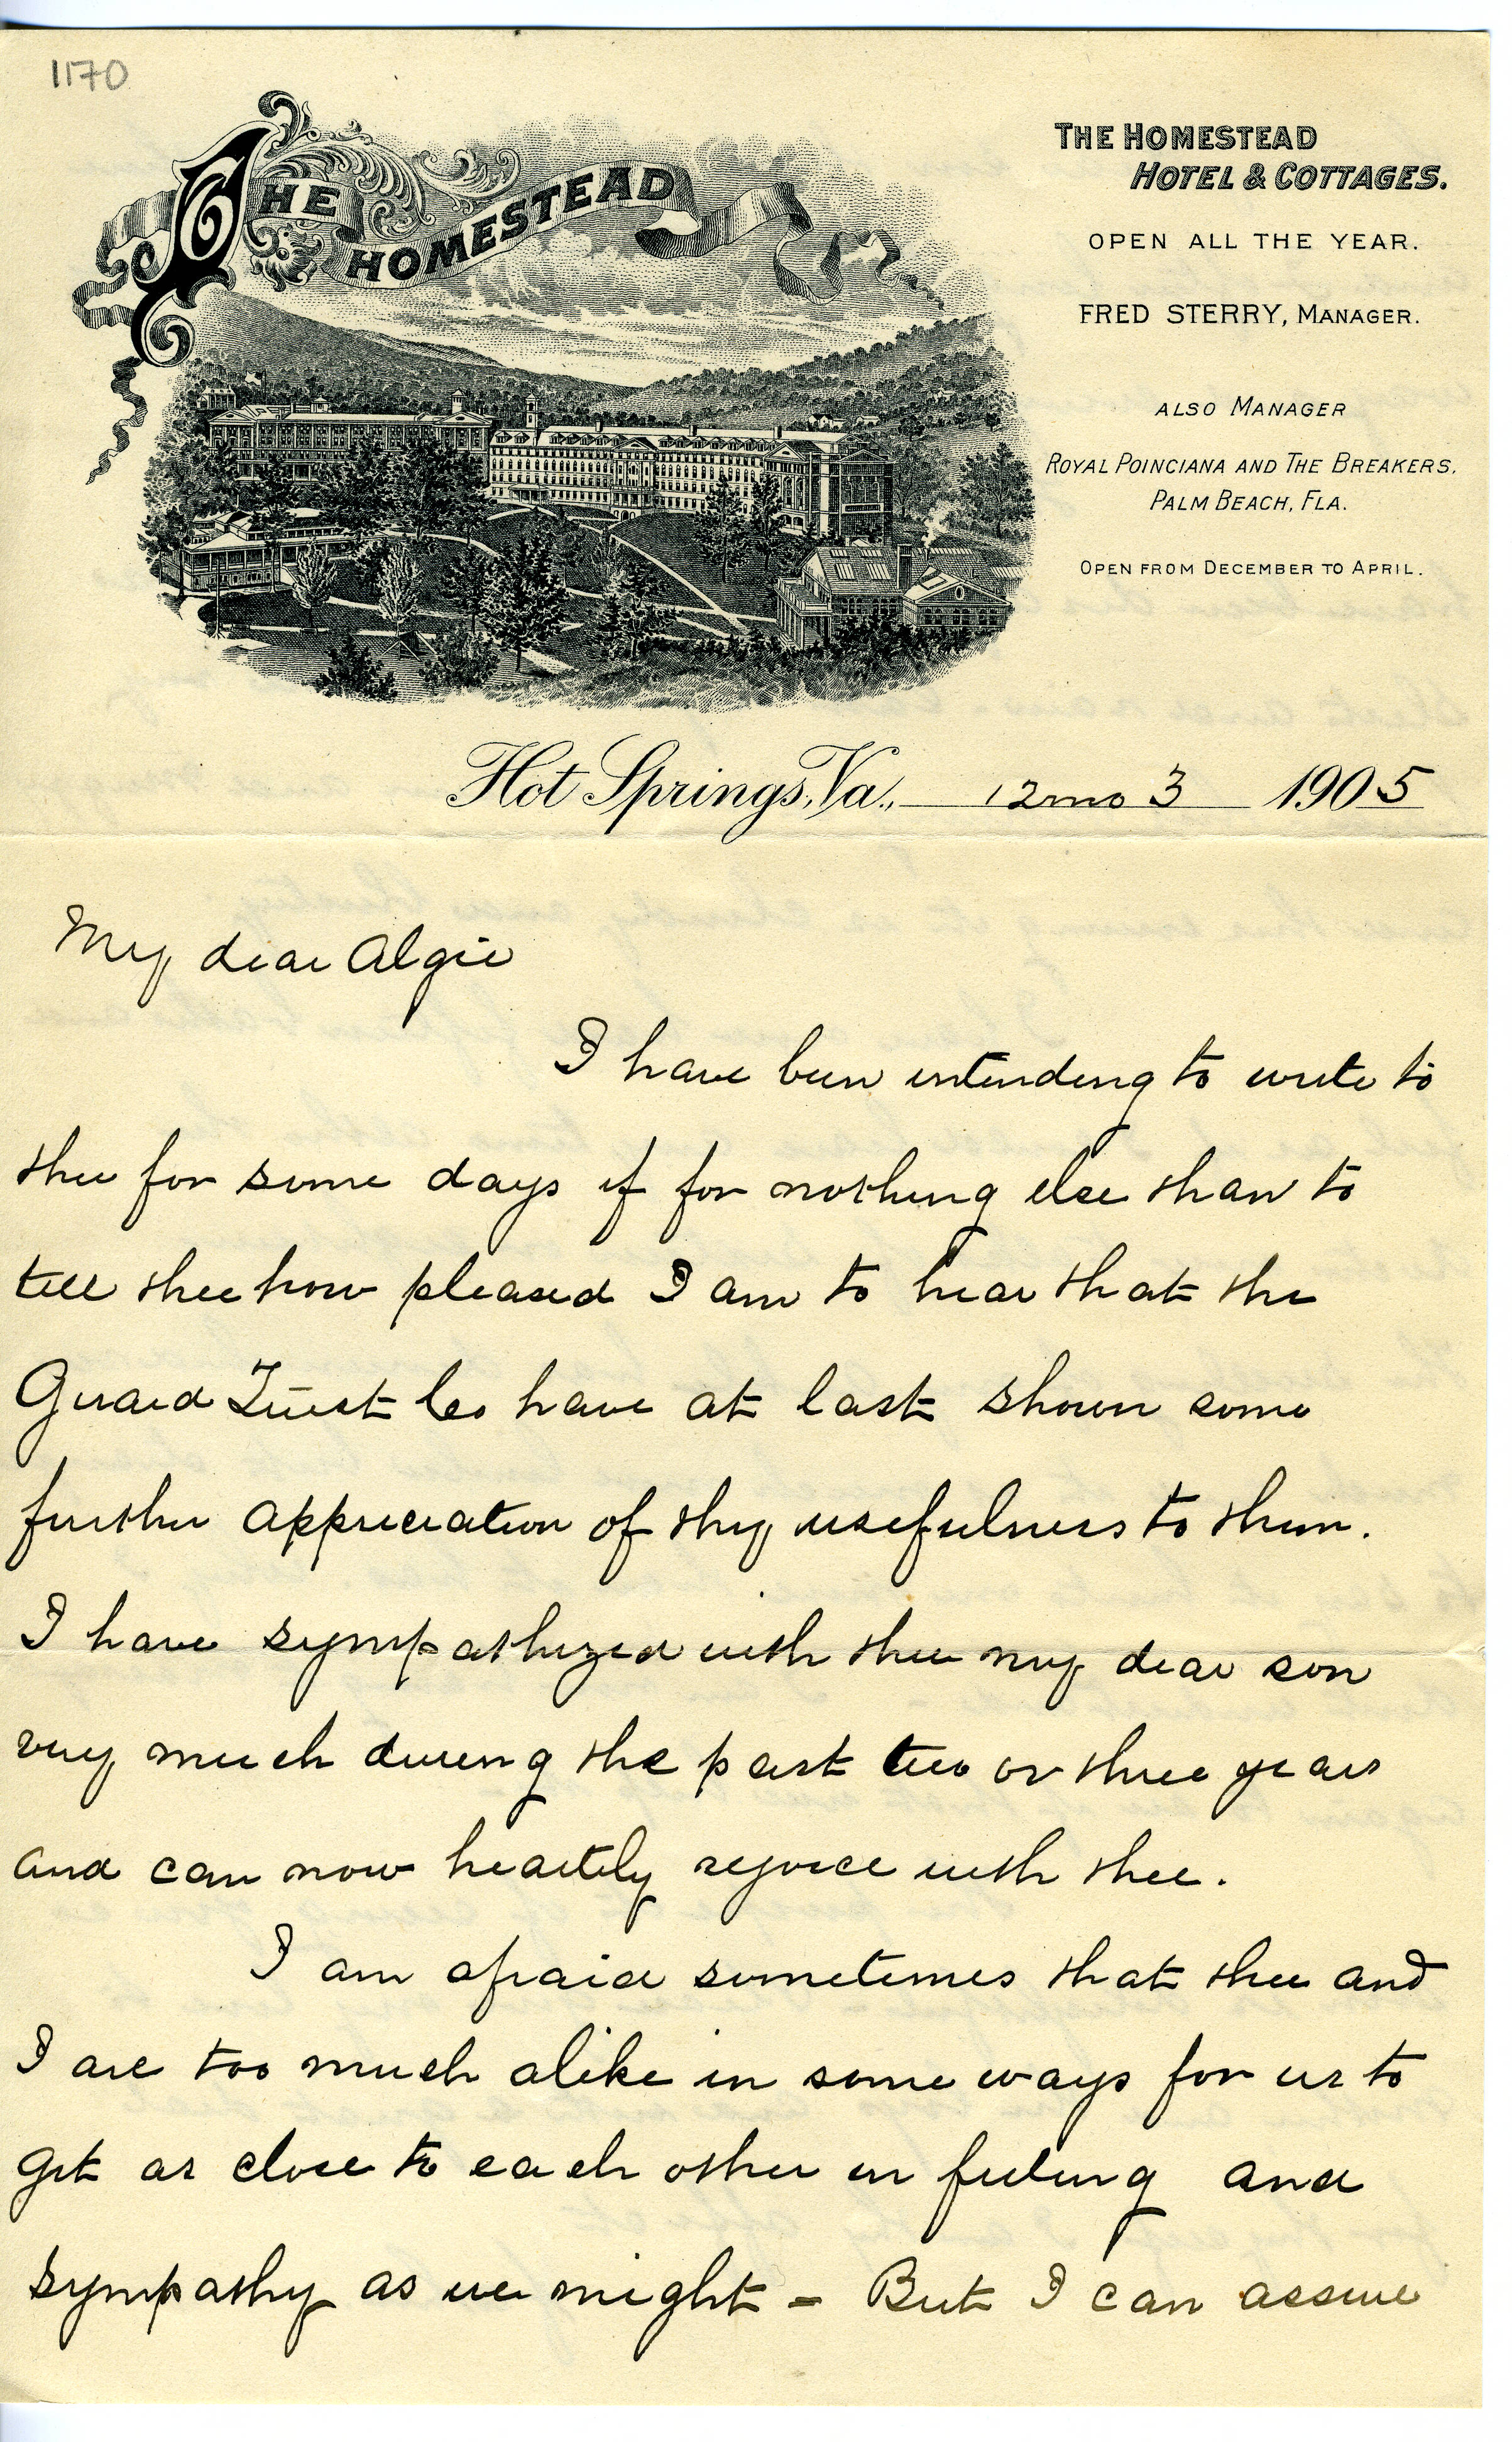 1170
THE HOMESTEAD
THE HOMESTEAD
HOTEL & COTTAGES.
OPEN ALL THE YEAR.
FRED STERRY, MANAGER.
ALSO MANAGER
ROYAL POINCIANA AND THE BREAKERS,
PALM BEACH, FLA.
OPEN FROM DECEMBER TO APRIL.
Hot Springs, Va., 12mo 3 1905
My dear Algie
I have been intending to write to
thee for some days if for nothing else than to
tell thee how pleased I am to hear that the
Guard Trust Co have at last shown some
further appreciation of thy usefulness to them.
I have sympathized with thee my dear son
very much during the past two or three years
and can now heartily rejoice with thee.
I am afraid sometimes that thee and
I are too much alike in some ways for us to
get as close to each other in feeling and
sympathy as we might - But I can assure